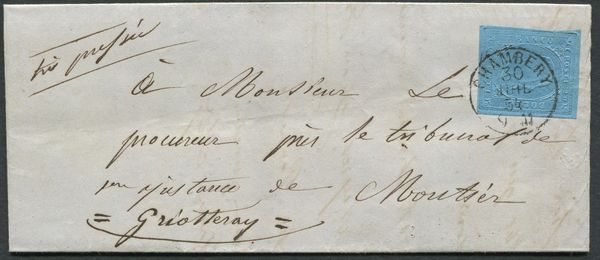 très pressée
CHAMBERY
30
JUIL
54
9 M
à Monsieur Le
procureur près le tribunal de
1ère instance de Moutiér
= Griotteray =